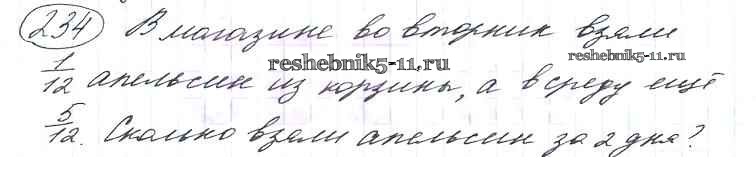 234 В магазине во вторник взяли
reshebnik5-11.ru
reshebnik5-11.ru
1/12 апельсин из корзины, а в среду ещё
5/12. Сколько взяли апельсин за 2 дня?